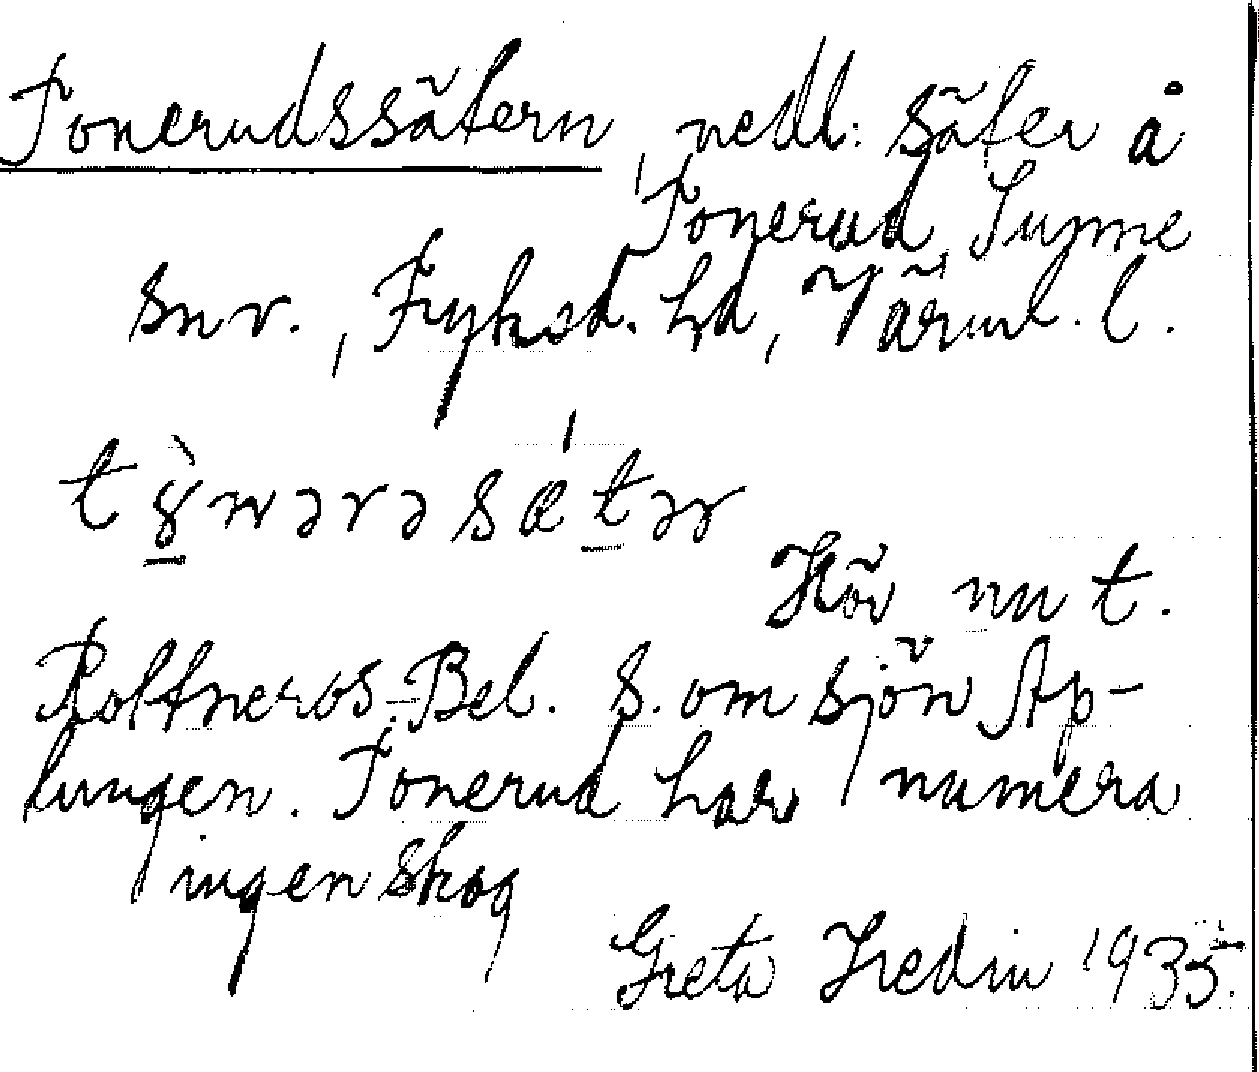 Tonerudssätern, nedl. säter å
Tonerud, Sunne
snr., Fryksd. hd, Värml. l.
Hör nu t.
Rottneros Bel. S. om sjön Ap-
lungen. Tonerud har numera
ingen skog
Greta Hedin 1935.